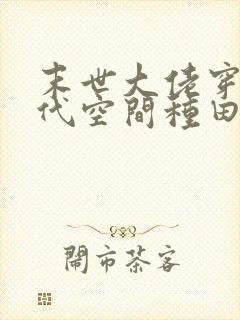 末世大佬穿
代空間種田
鬧市茶客